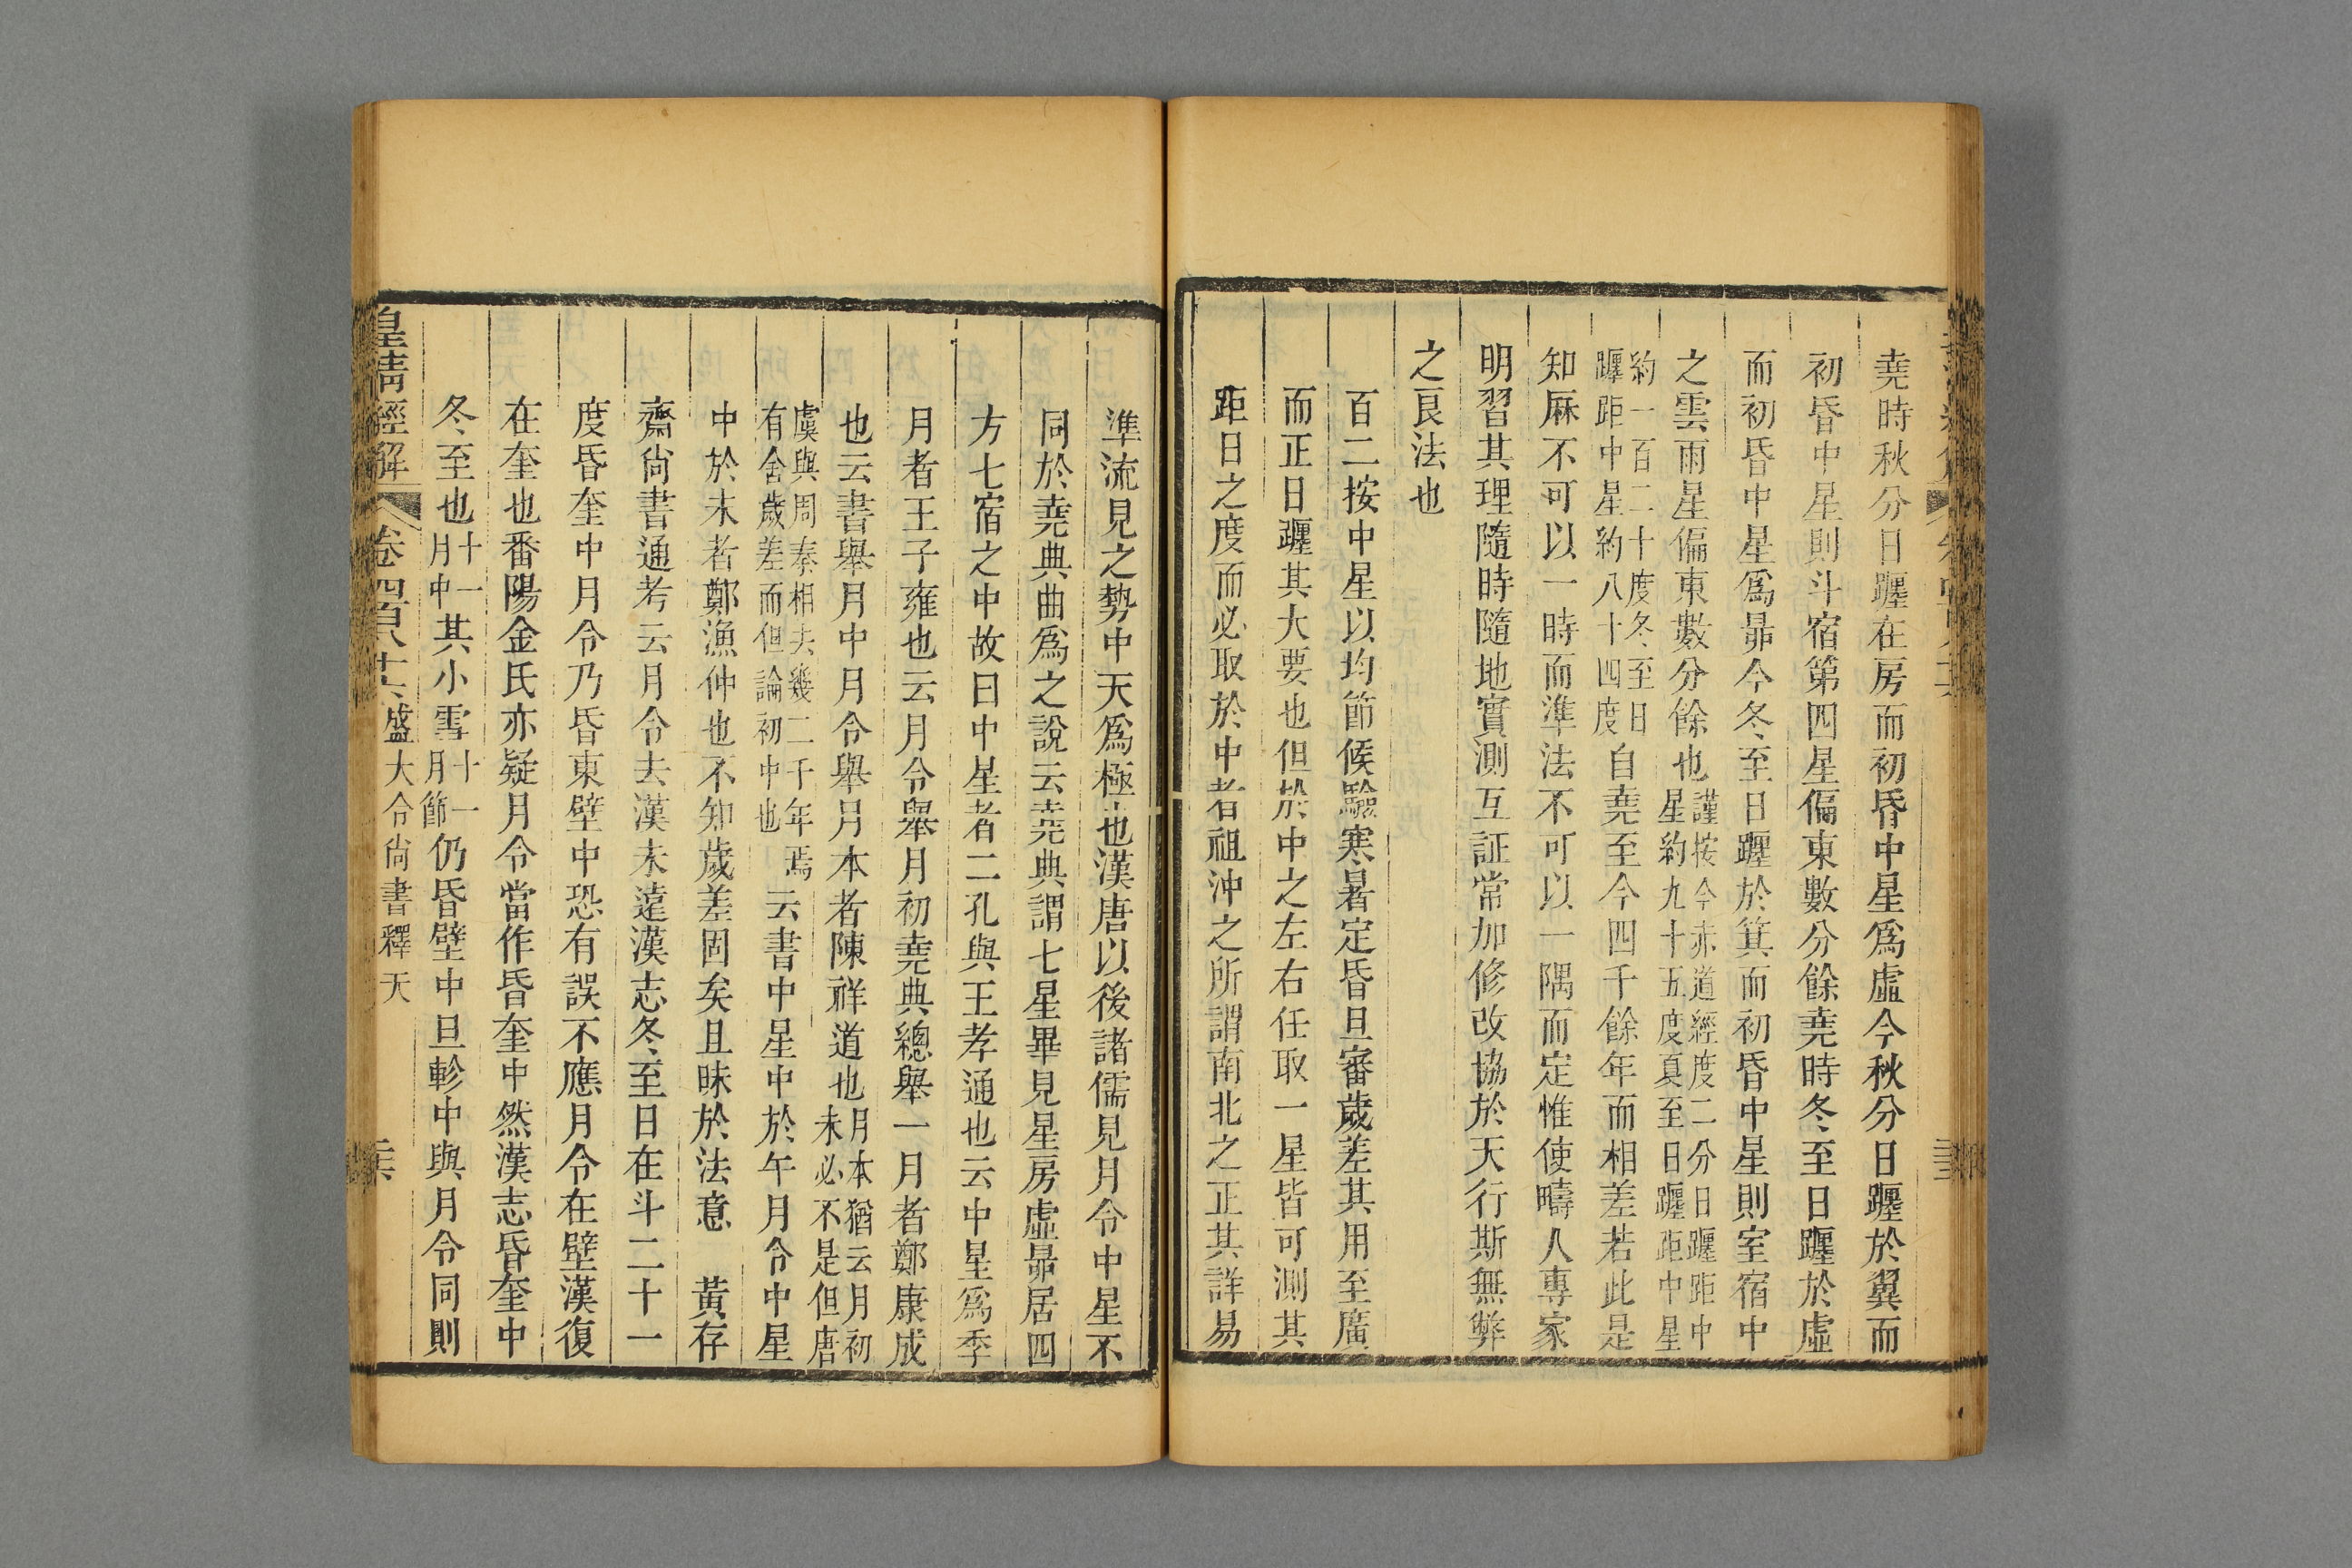 堯時秋分日躔在房而初昏中星爲虛今秋分日躔於翼而
初昏中星則斗宿第四星偏東數分餘堯時冬至日躔於虛
而初昏中星爲昴今冬至日躔於箕而初昏中星則室宿中
之雲雨星偏東數分餘也謹按今赤道經度二分日躔距中星約九十五度夏至日躔距中星
約一百二十度冬至日躔距中星約八十四度自堯至今四千餘年而相差若此是
知厤不可以一時而準法不可以一隅而定惟使疇人專家
明習其理隨時隨地實測互証常加修改協於天行斯無弊
之良法也
百二按中星以均節候驗寒暑定昏旦審歲差其用至廣
而正日躔其大要也但於中之左右任取一星皆可測其
距日之度而必取於中者祖沖之所謂南北之正其詳易
準流見之勢中天爲極也漢唐以後諸儒見月令中星不
同於堯典曲爲之說云堯典謂七星畢見星房虛昴居四
方七宿之中故曰中星者二孔與王孝通也云中星爲季
月者王子雍也云月令舉月初堯典總舉一月者鄭康成
也云書舉月中月令舉月本者陳祥道也月本猶云月初未必不是但唐
虞與周秦相去幾二千年焉有舍歲差而但論初中也云書中星中於午月令中星
中於未者鄭漁仲也不知歲差固矣且昧於法意　黃存
齋尙書通考云月令去漢未遠漢志冬至日在斗二十一
度昏奎中月令乃昏東壁中恐有誤不應月令在壁漢復
在奎也番陽金氏亦疑月令當作昏奎中然漢志昏奎中
冬至也十一月中其小雪十一月節仍昏壁中旦軫中與月令同則
皇淸經解　卷四百八十六　盛大令尙書釋天